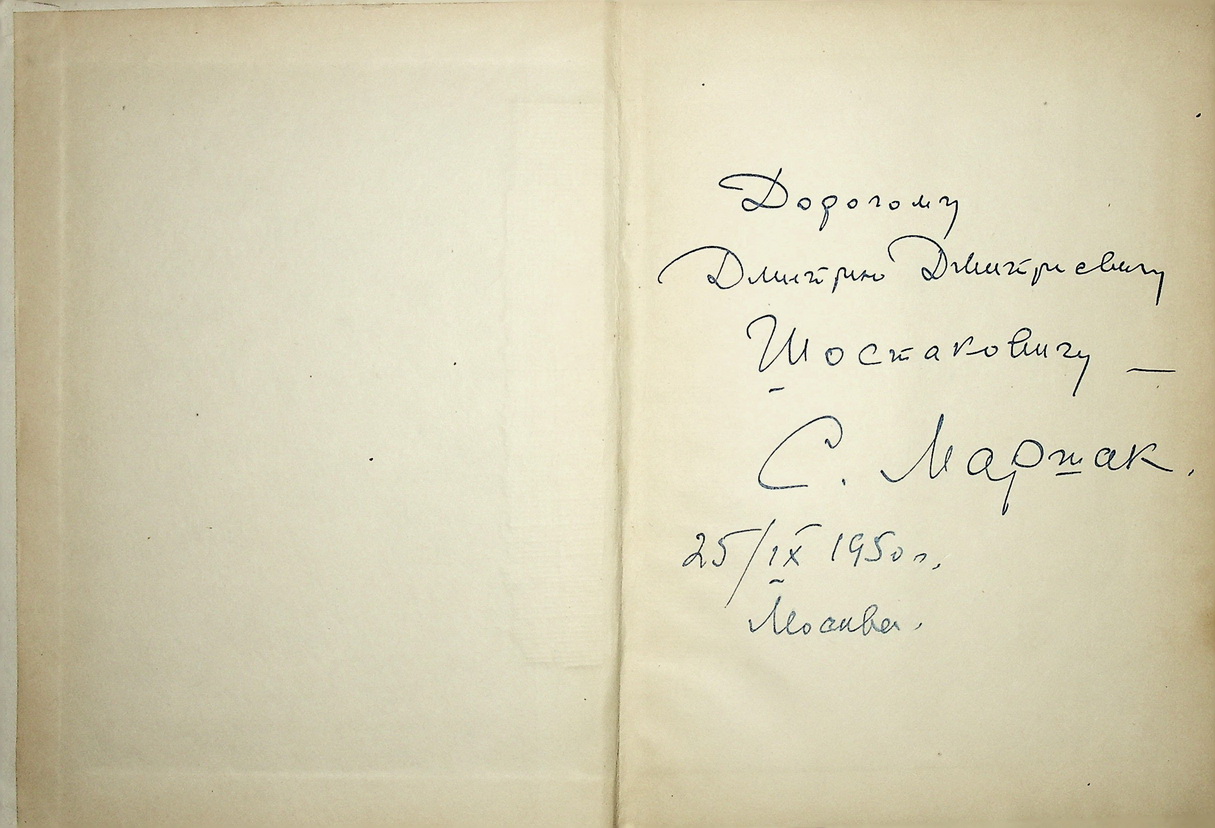 Дорогому
Дмитрию Дмитриевичу
Шостаковичу —
С. Маршак.
25/IX 1950 г.
Москва.